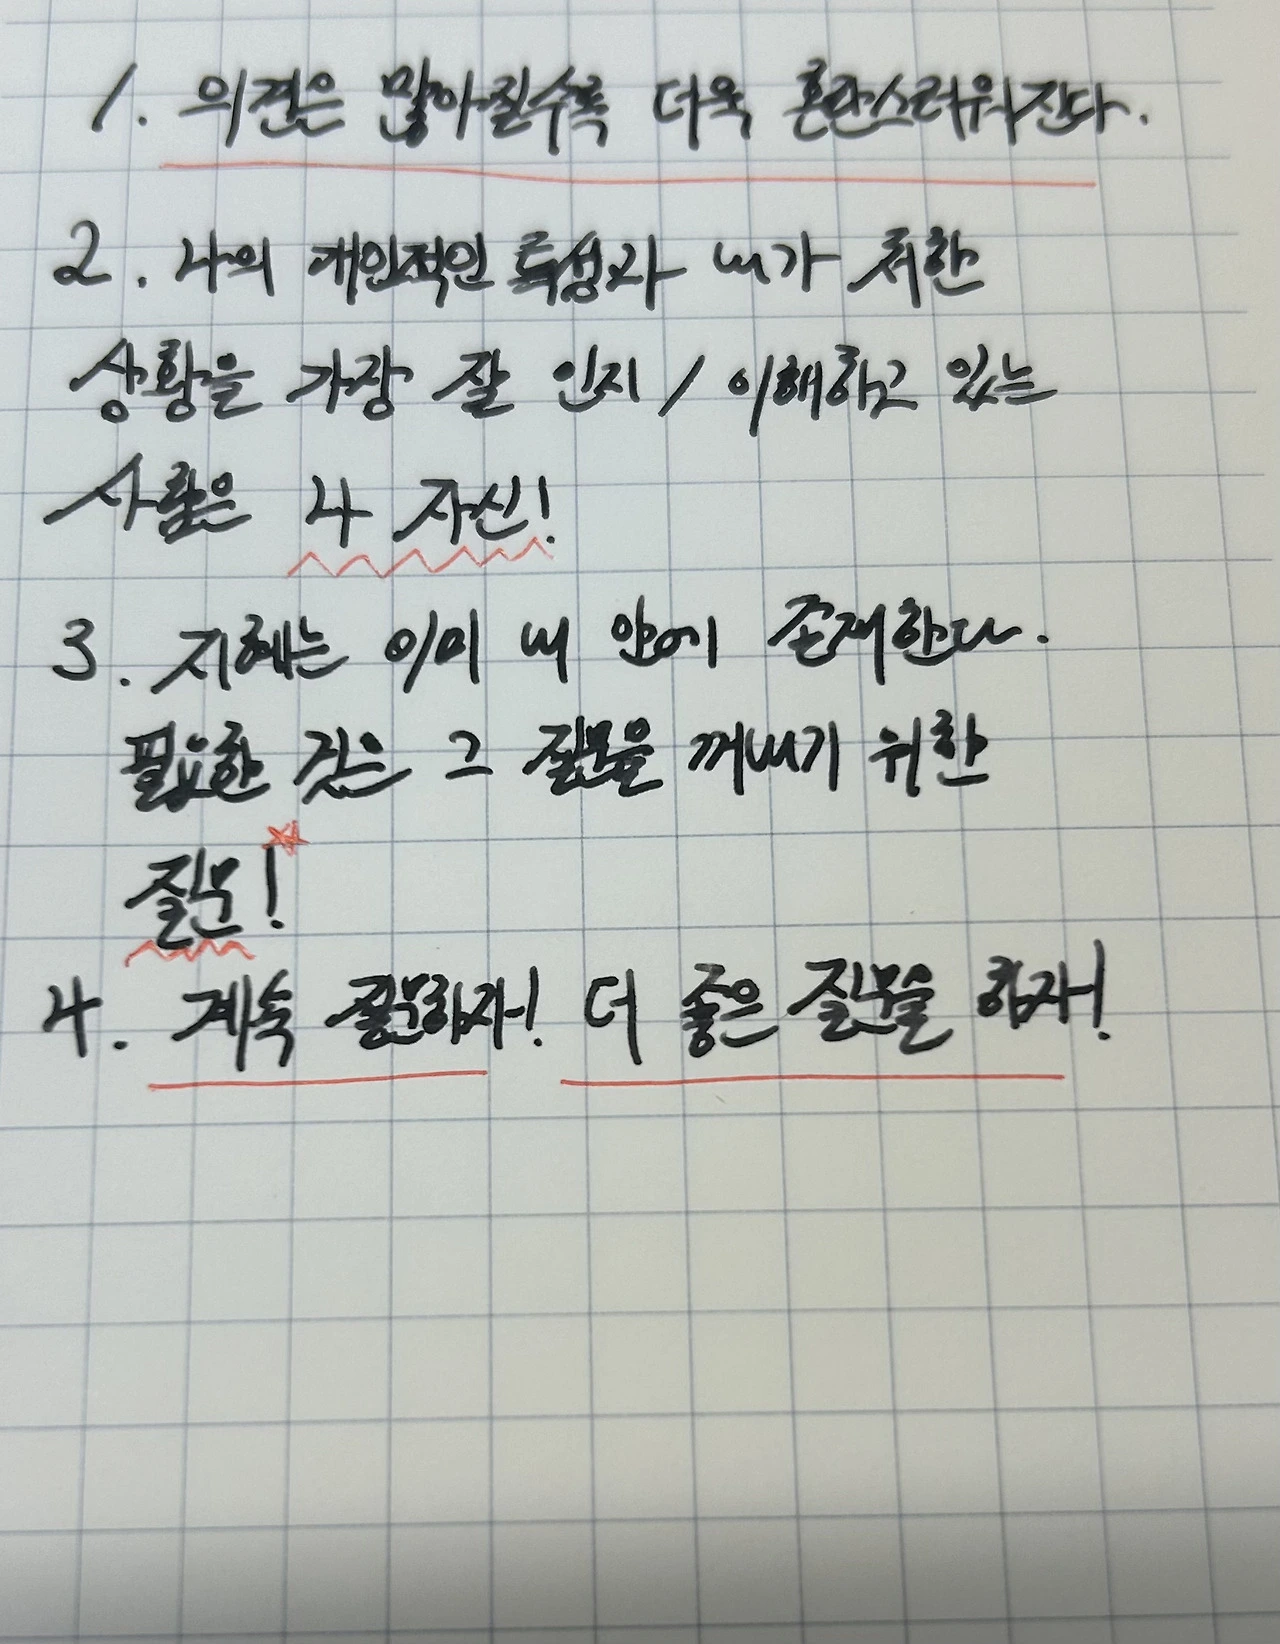 1. 의견은 많아질수록 더욱 혼란스러워진다.
2. 나의 개인적인 특성과 내가 처한
상황을 가장 잘 인지 / 이해하고 있는
사람은 나 자신!
3. 지혜는 이미 내 안에 존재한다.
필요한 것은 그 질문을 꺼내기 위한
질문!
4. 계속 질문하자! 더 좋은 질문을 하자!